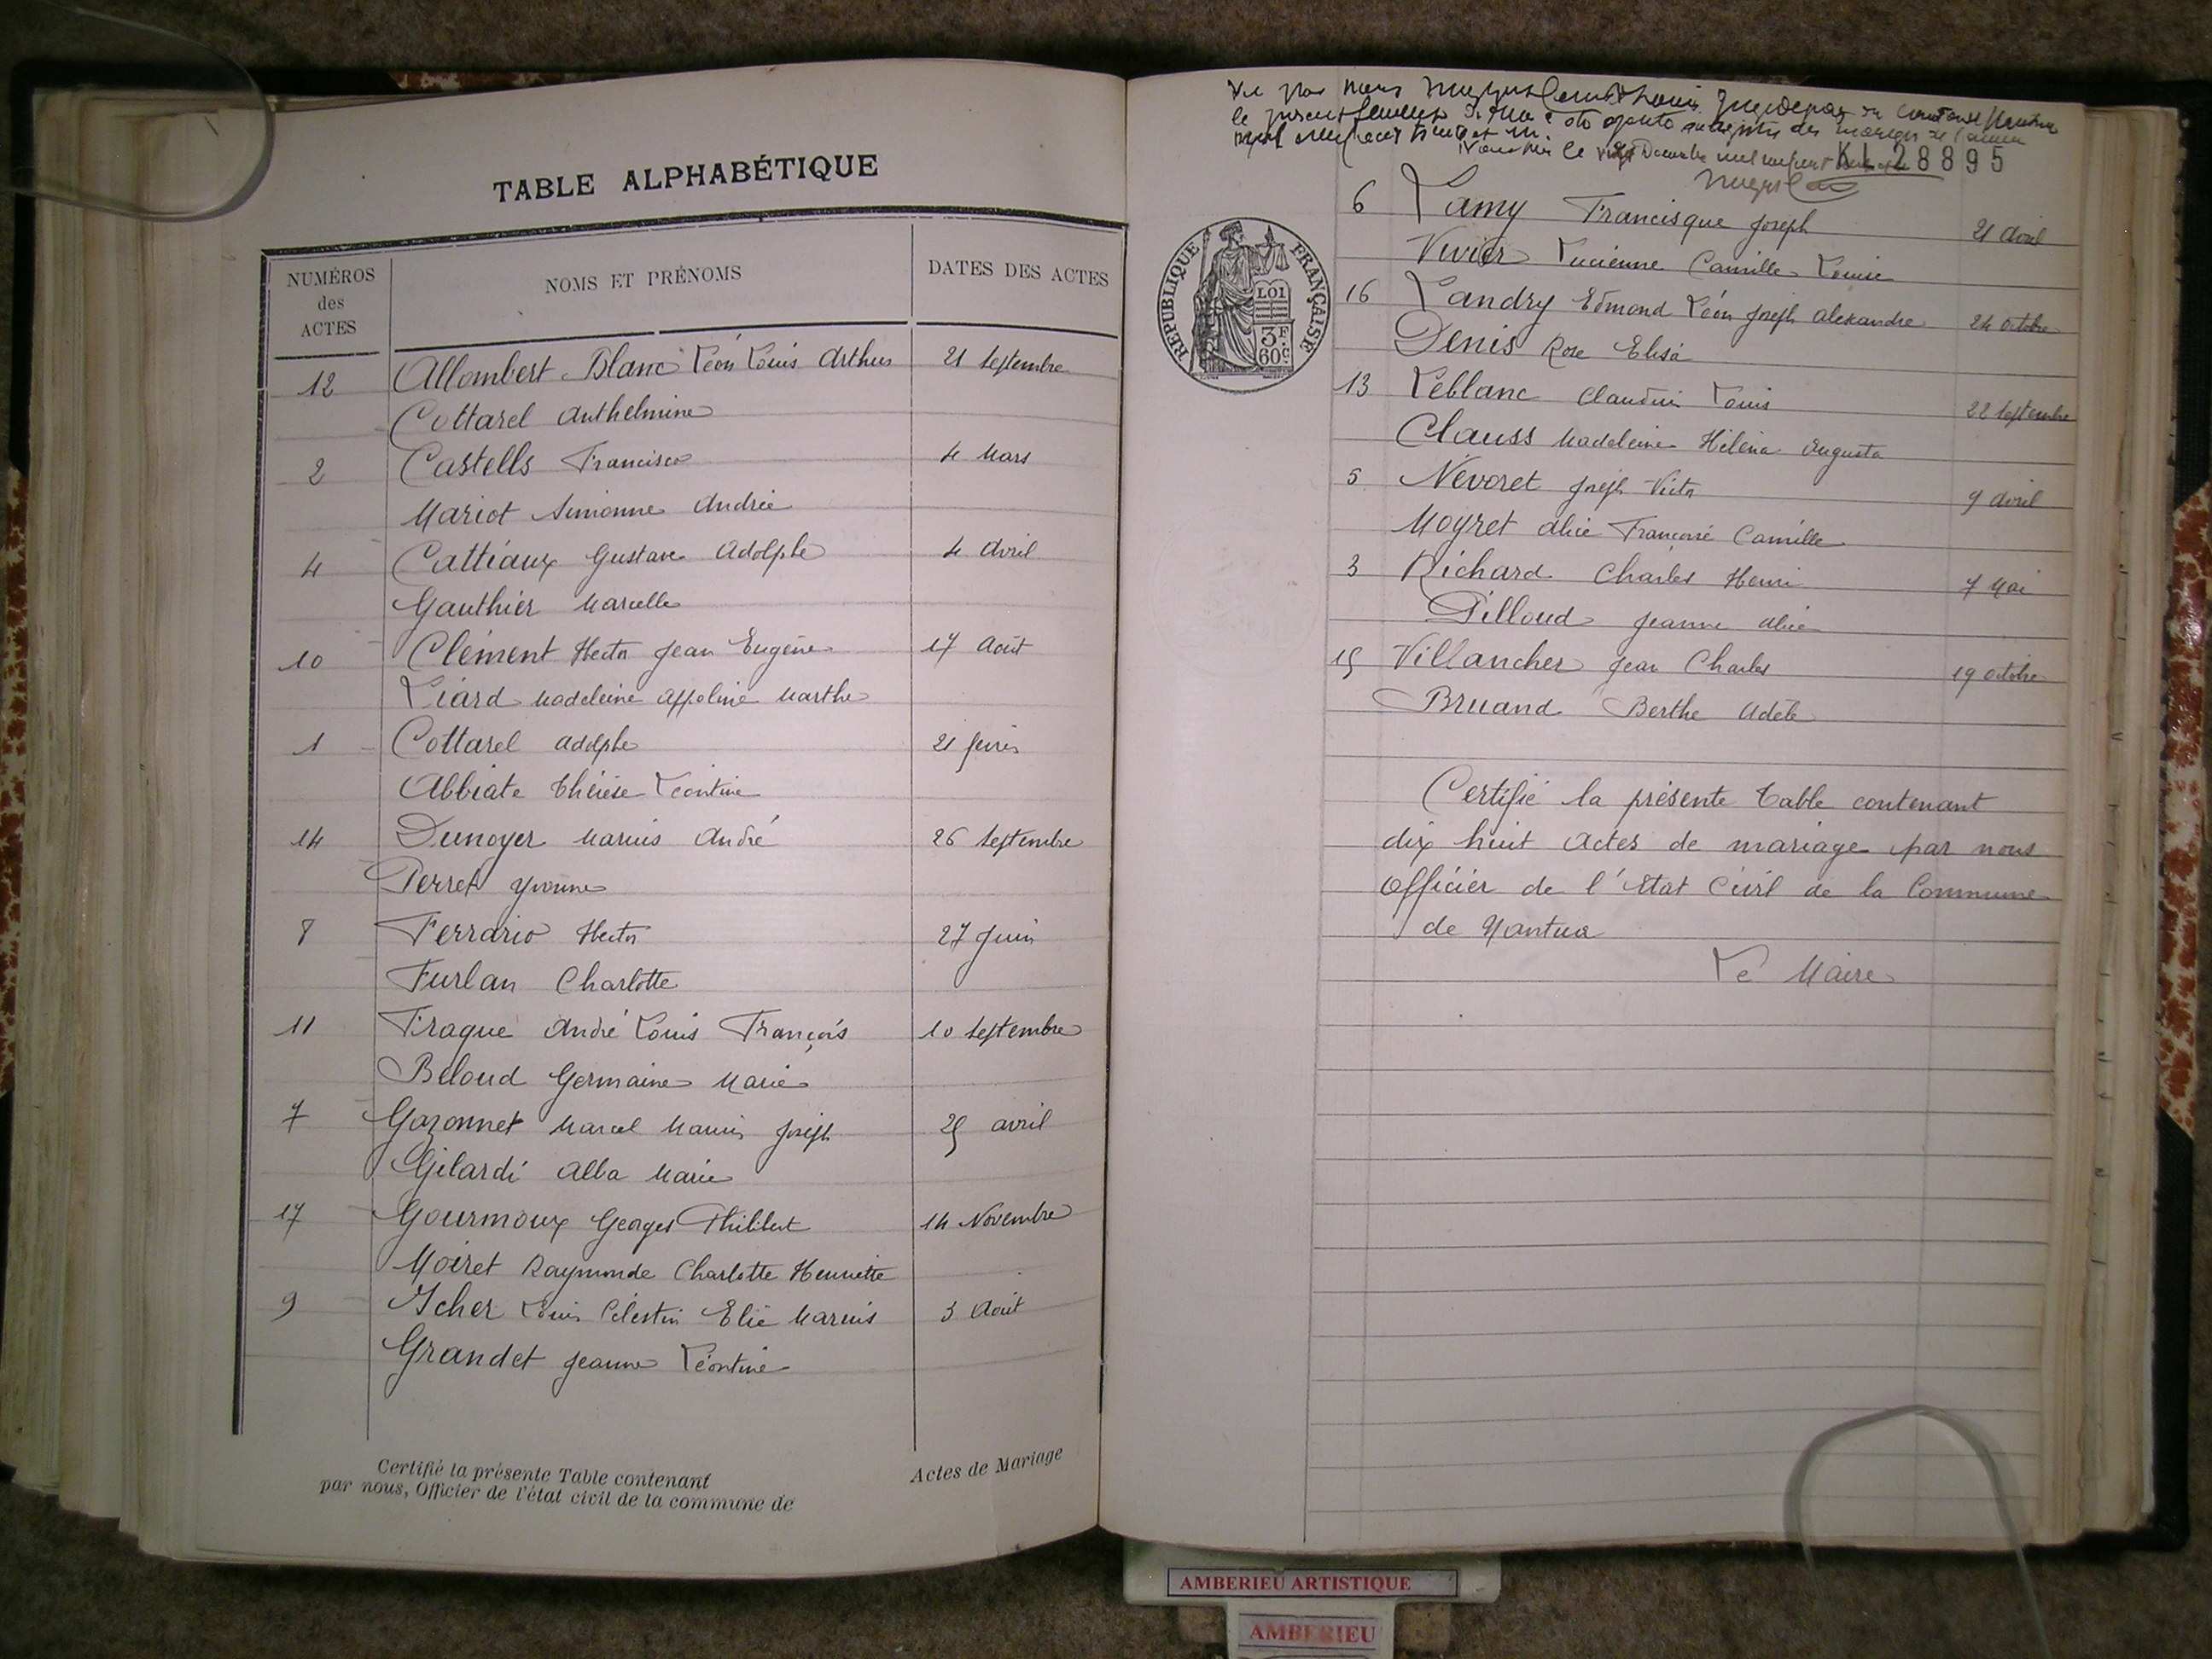 TABLE ALPHABÉTIQUE
NUMÉROS
des
ACTES
NOMS ET PRÉNOMS
DATES DES ACTES
12 Allombert Blanc Léon Louis Arthur 21 Septembre
Cottarel Anthelmine
2 Castells Francisco 4 Mars
Mariot Simonne Andrée
4 Cattiaux Gustave Adolphe 4 Avril
Gauthier Marcelle
10 Clément Hector Jean Eugène 17 Août
Liard Madeleine Appoline Marthe
1 Cottarel Adolphe 21
Abbiate Thérèse Léontine
14 Dunoyer Marius André 26 Septembre
Perret Yvonne
8 Ferrario Hector 27 Juin
Furlan Charlotte
11 Fraque André Louis François 10 Septembre
Beloud Germaine Marie
7 Gazonnet Marcel Marius Joseph 25 avril
Gilardi Alba Marie
17 Gourmoux Georges Philibert 14 Novembre
Moiret Raymonde Charlotte Henriette
9 Icher Louis Célestin Elie Marius 3 Août
Grandet Jeanne Léontine
Certifié la présente Table contenant
Actes de Mariage
par nous, Officier de l'état civil de la commune de
Vu par nous
le présent
KL 28895
RÉPUBLIQUE FRANÇAISE
LOI
3F
60c
6 Lamy Francisque Joseph 21 Avril
Vivier Lucienne Camille Louise
16 Landry Edmond Léon Joseph Alexandre 24 Octobre
Denis Rose Elisa
13 Leblanc Claudius Louis 22 Septembre
Clauss Madeleine Héléna Augusta
5 Névoret Joseph Victor 9 Avril
Moyret Alice Françoise Camille
3 Richard Charles Henri 7 Mai
Pilloud Jeanne Alice
15 Villancher Jean Charles 19 Octobre
Bruand Berthe Adèle
Certifié la présente Table contenant
dix huit Actes de mariage par nous
Officier de l'Etat Civil de la Commune
de Nantua
Le Maire
AMBERIEU ARTISTIQUE
AMBERIEU